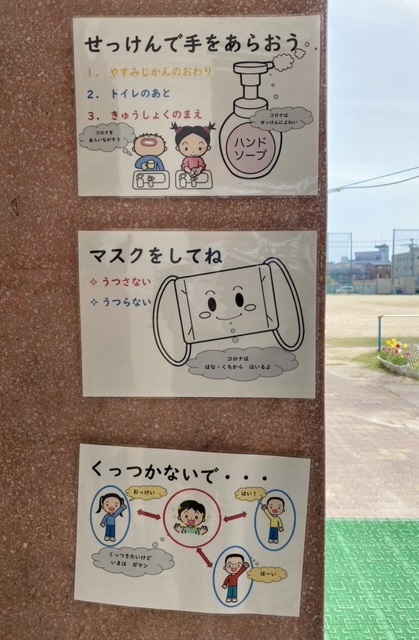 せっけんで手をあらおう
1. やすみじかんのおわり
2. トイレのあと
3. きゅうしょくのまえ
コロナを
あらいながそう
コロナは
せっけんによわい
ハンド
ソープ
マスクをしてね
✧ うつさない
✧ うつらない
コロナは
はな・くちから はいるよ
くっつかないで・・・
おっけい
はい!
くっつきたいけど
いまは ガマン
はーい